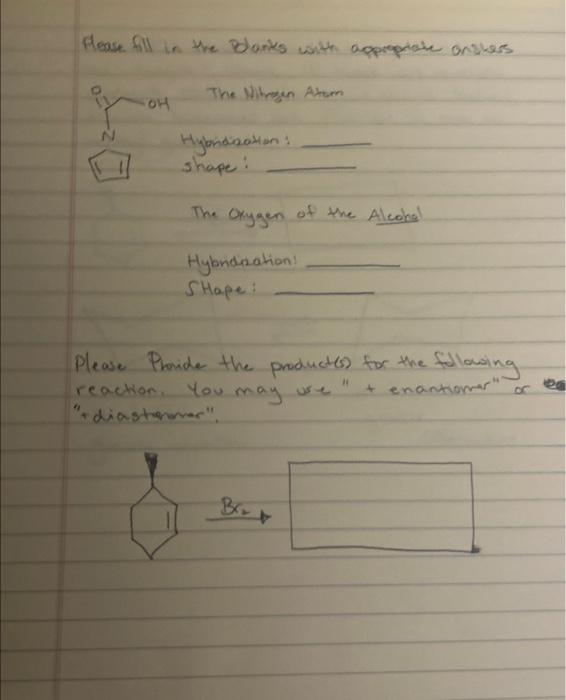 Please fill in the Blanks with appropriate answers
The Nitrogen Atom
O
OH
N
Hybridization:
shape:
The Oxygen of the Alcohol
Hybridization:
SHape:
Please Provide the product(s) for the following
reaction. You may use "+ enantiomer" or
"+ diastereomer".
Br₂